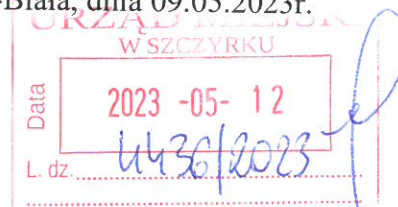 -Biała, dnia 09.05.2023r.
URZĄD MIEJSKI
W SZCZYRKU
Data
2023 -05- 12
L. dz. 4436/2023